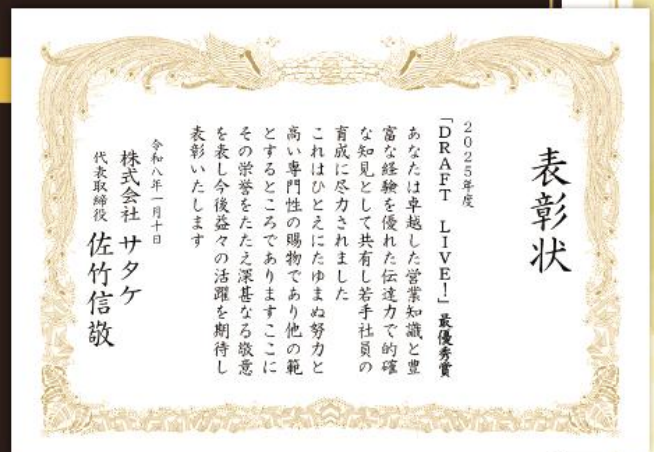 表彰状
2025年度
「DRAFT LIVE!」最優秀賞
あなたは卓越した営業知識と豊
富な経験を優れた伝達力で的確
な知見として共有し若手社員の
育成に尽力されました
これはひとえにたゆまぬ努力と
高い専門性の賜物であり他の範
とするところでありますここに
その栄誉をたたえ深甚なる敬意
を表し今後益々の活躍を期待し
表彰いたします
令和八年一月十日
株式会社 サタケ
代表取締役 佐竹信敬